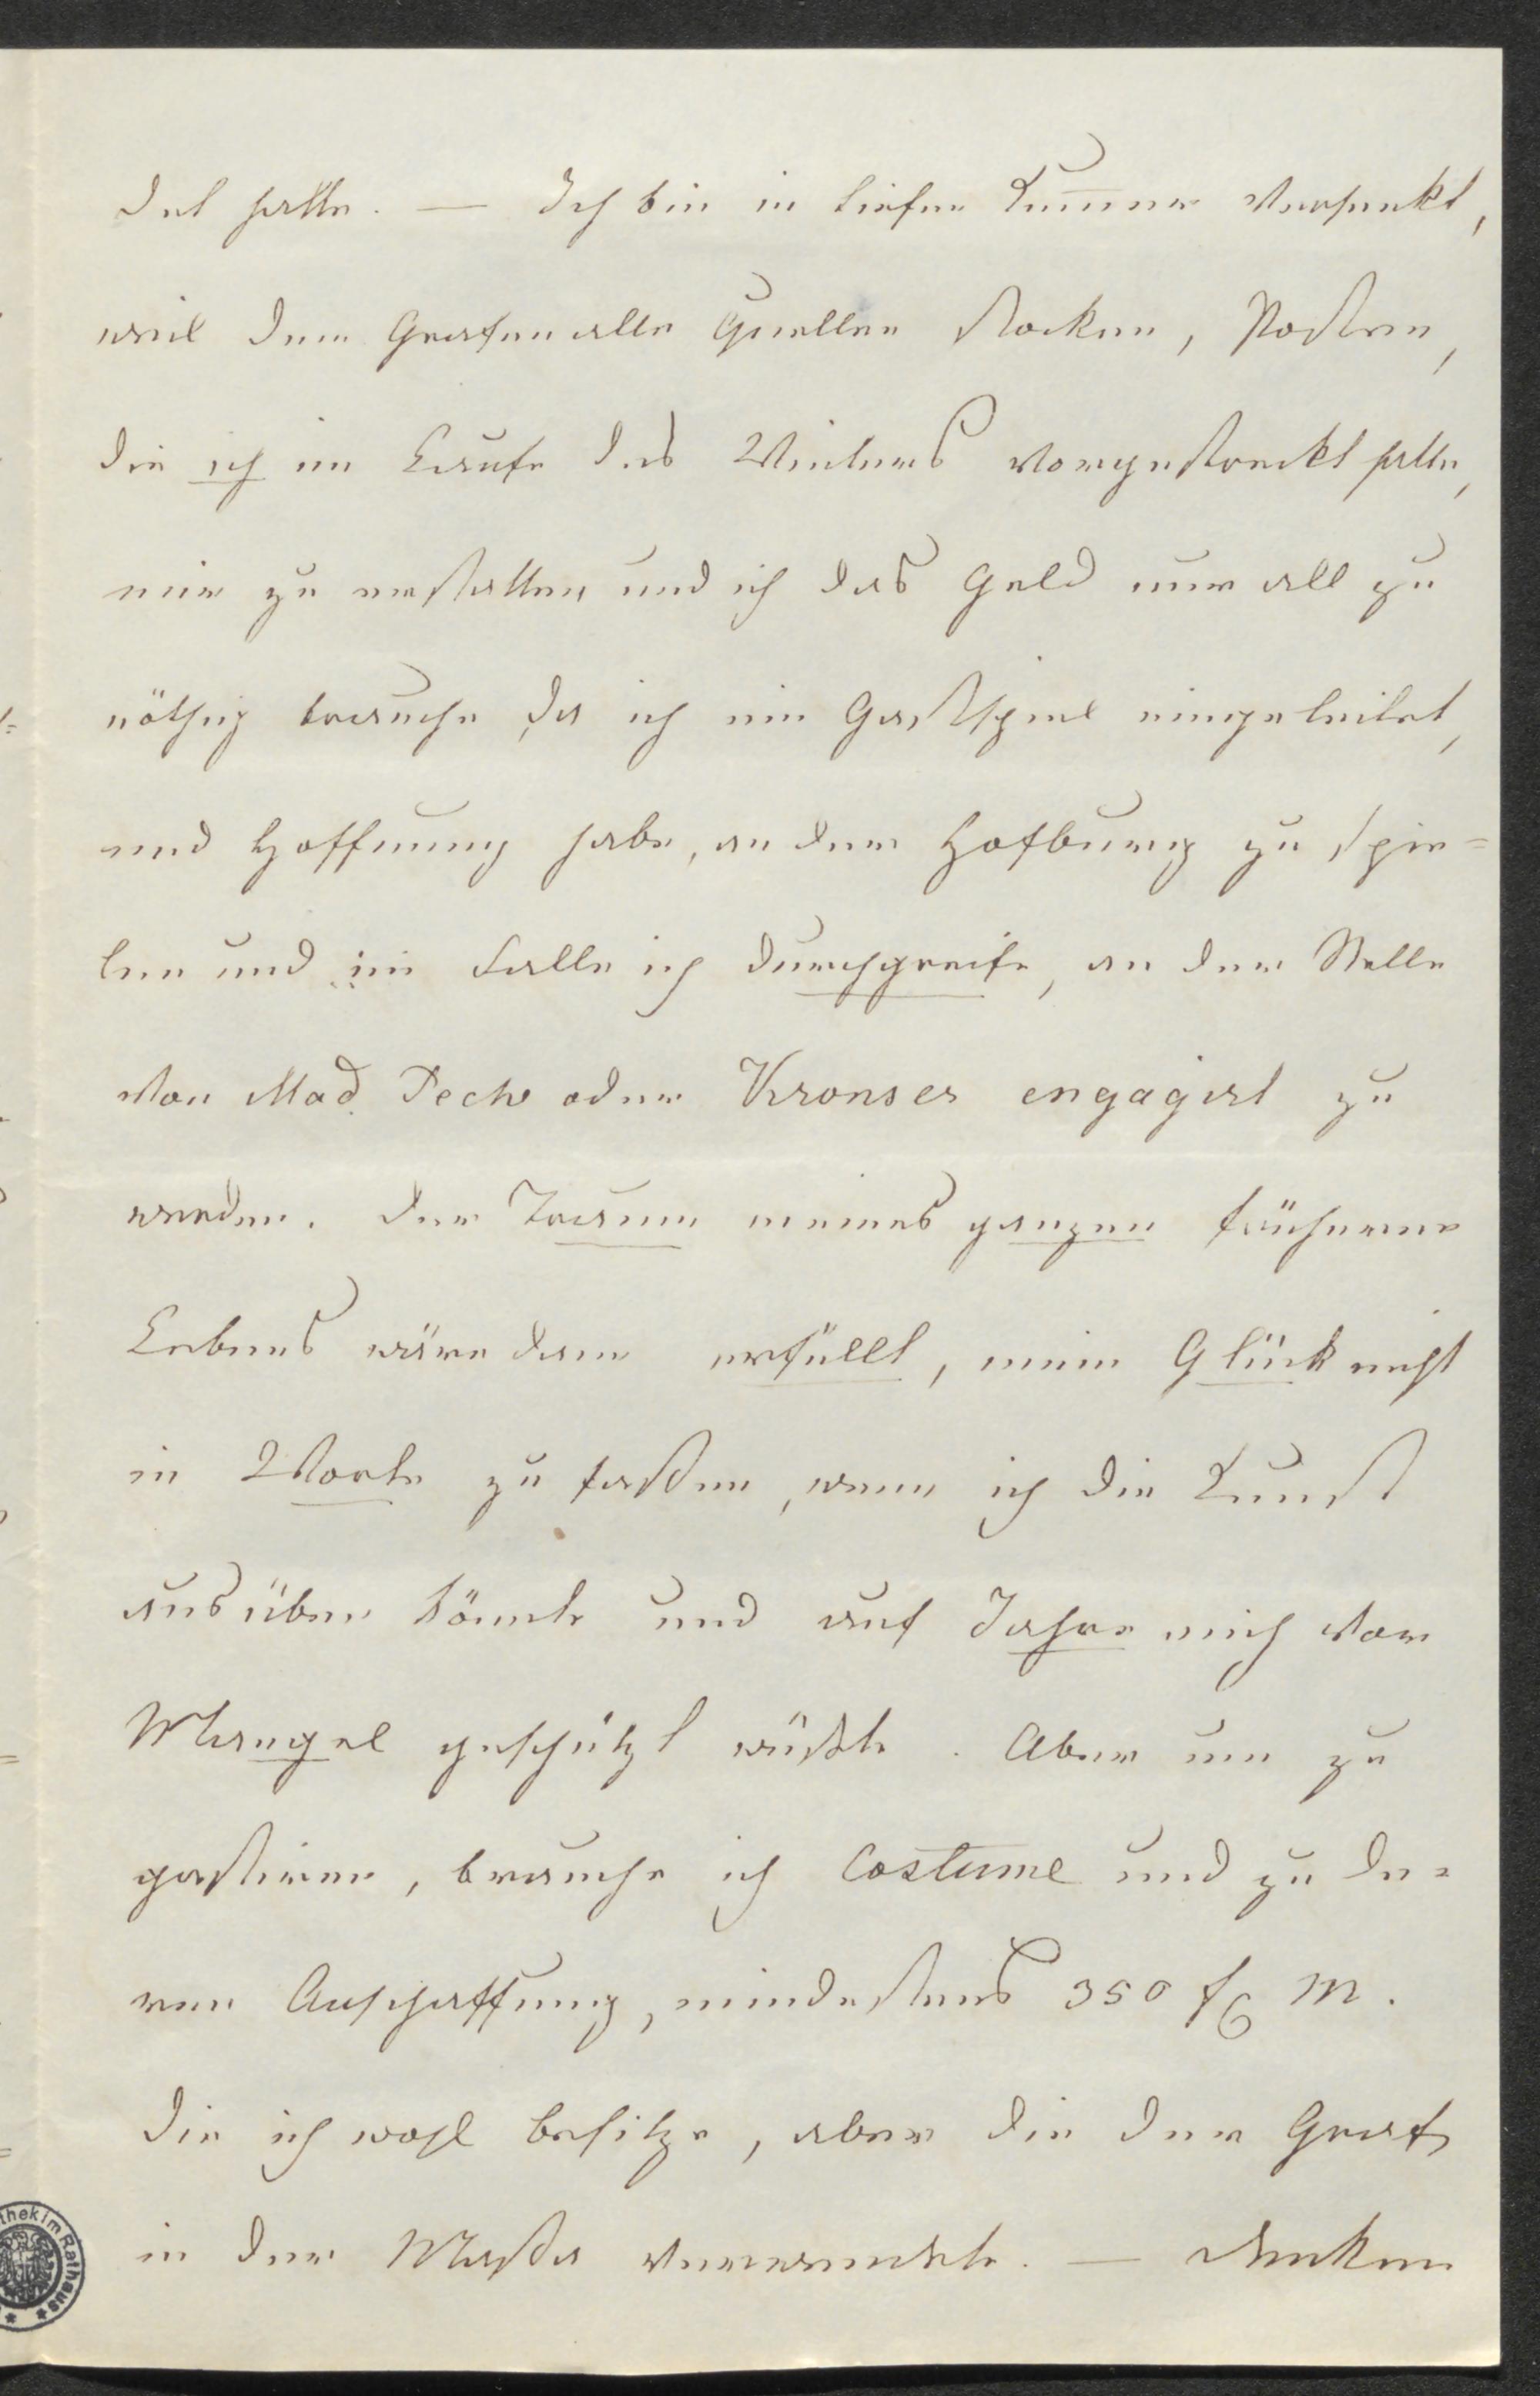 det hatte. — Ich bin in tiefen Kummer versenkt,
weil dem Grafen alle Quellen stocken, Posten,
die ich im Laufe des Winters vorgestreckt hatte,
mir zu erstatten und ich das Geld nur all zu
nöthig brauche, da ich ein Gastspiel eingeleitet,
und Hoffnung habe, an der Hofburg zu spie=
len und im Falle ich durchgreife, an der Stelle
von Mad. Peche oder Kronser engagirt zu
werden. Der Traum meines ganzen früheren
Lebens wäre dann erfüllt, mein Glück nicht
in Worte zu faßen, wenn ich die Kunst
ausüben könnte und auf Jahre mich vor
Mangel geschützt wüßte. Aber um zu
gastiren, brauche ich Costume und zu de=
ren Anschaffung, mindestens 350 f C M.
die ich wohl besitze, aber die der Graf
in der Massa verwendete. — denken
thek im Rathaus